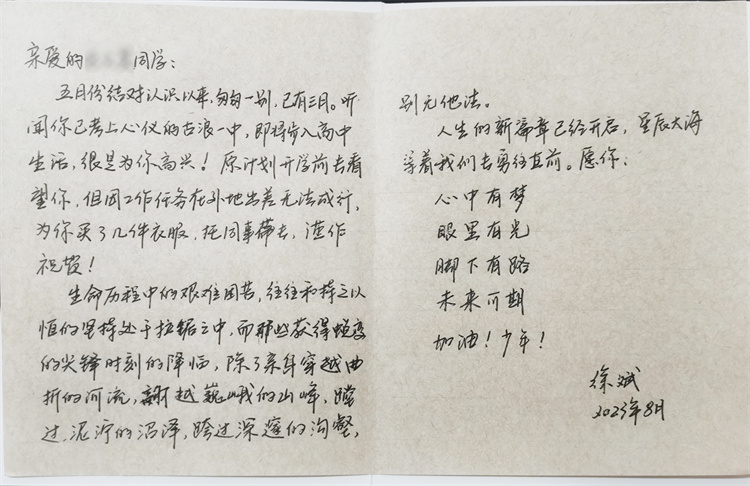 亲爱的 同学：
五月份结对认识以来，匆匆一别，已有三月。听
闻你已考上心仪的古浪一中，即将步入高中
生活，很是为你高兴！原计划开学前去看
望你，但因工作任务在外地出差无法成行，
为你买了几件衣服，托同事带去，谨作
祝贺！
生命历程中的艰难困苦，往往和持之以
恒的坚持处于拉锯之中，而那些获得蜕变
的尖锋时刻的降临，除了亲身穿越曲
折的河流，翻越巍峨的山峰，蹚
过泥泞的沼泽，跨过深邃的沟壑，
别无他法。
人生的新篇章已经开启，星辰大海
等着我们去勇往直前。愿你：
心中有梦
眼里有光
脚下有路
未来可期
加油！少年！
徐斌
2023年8月